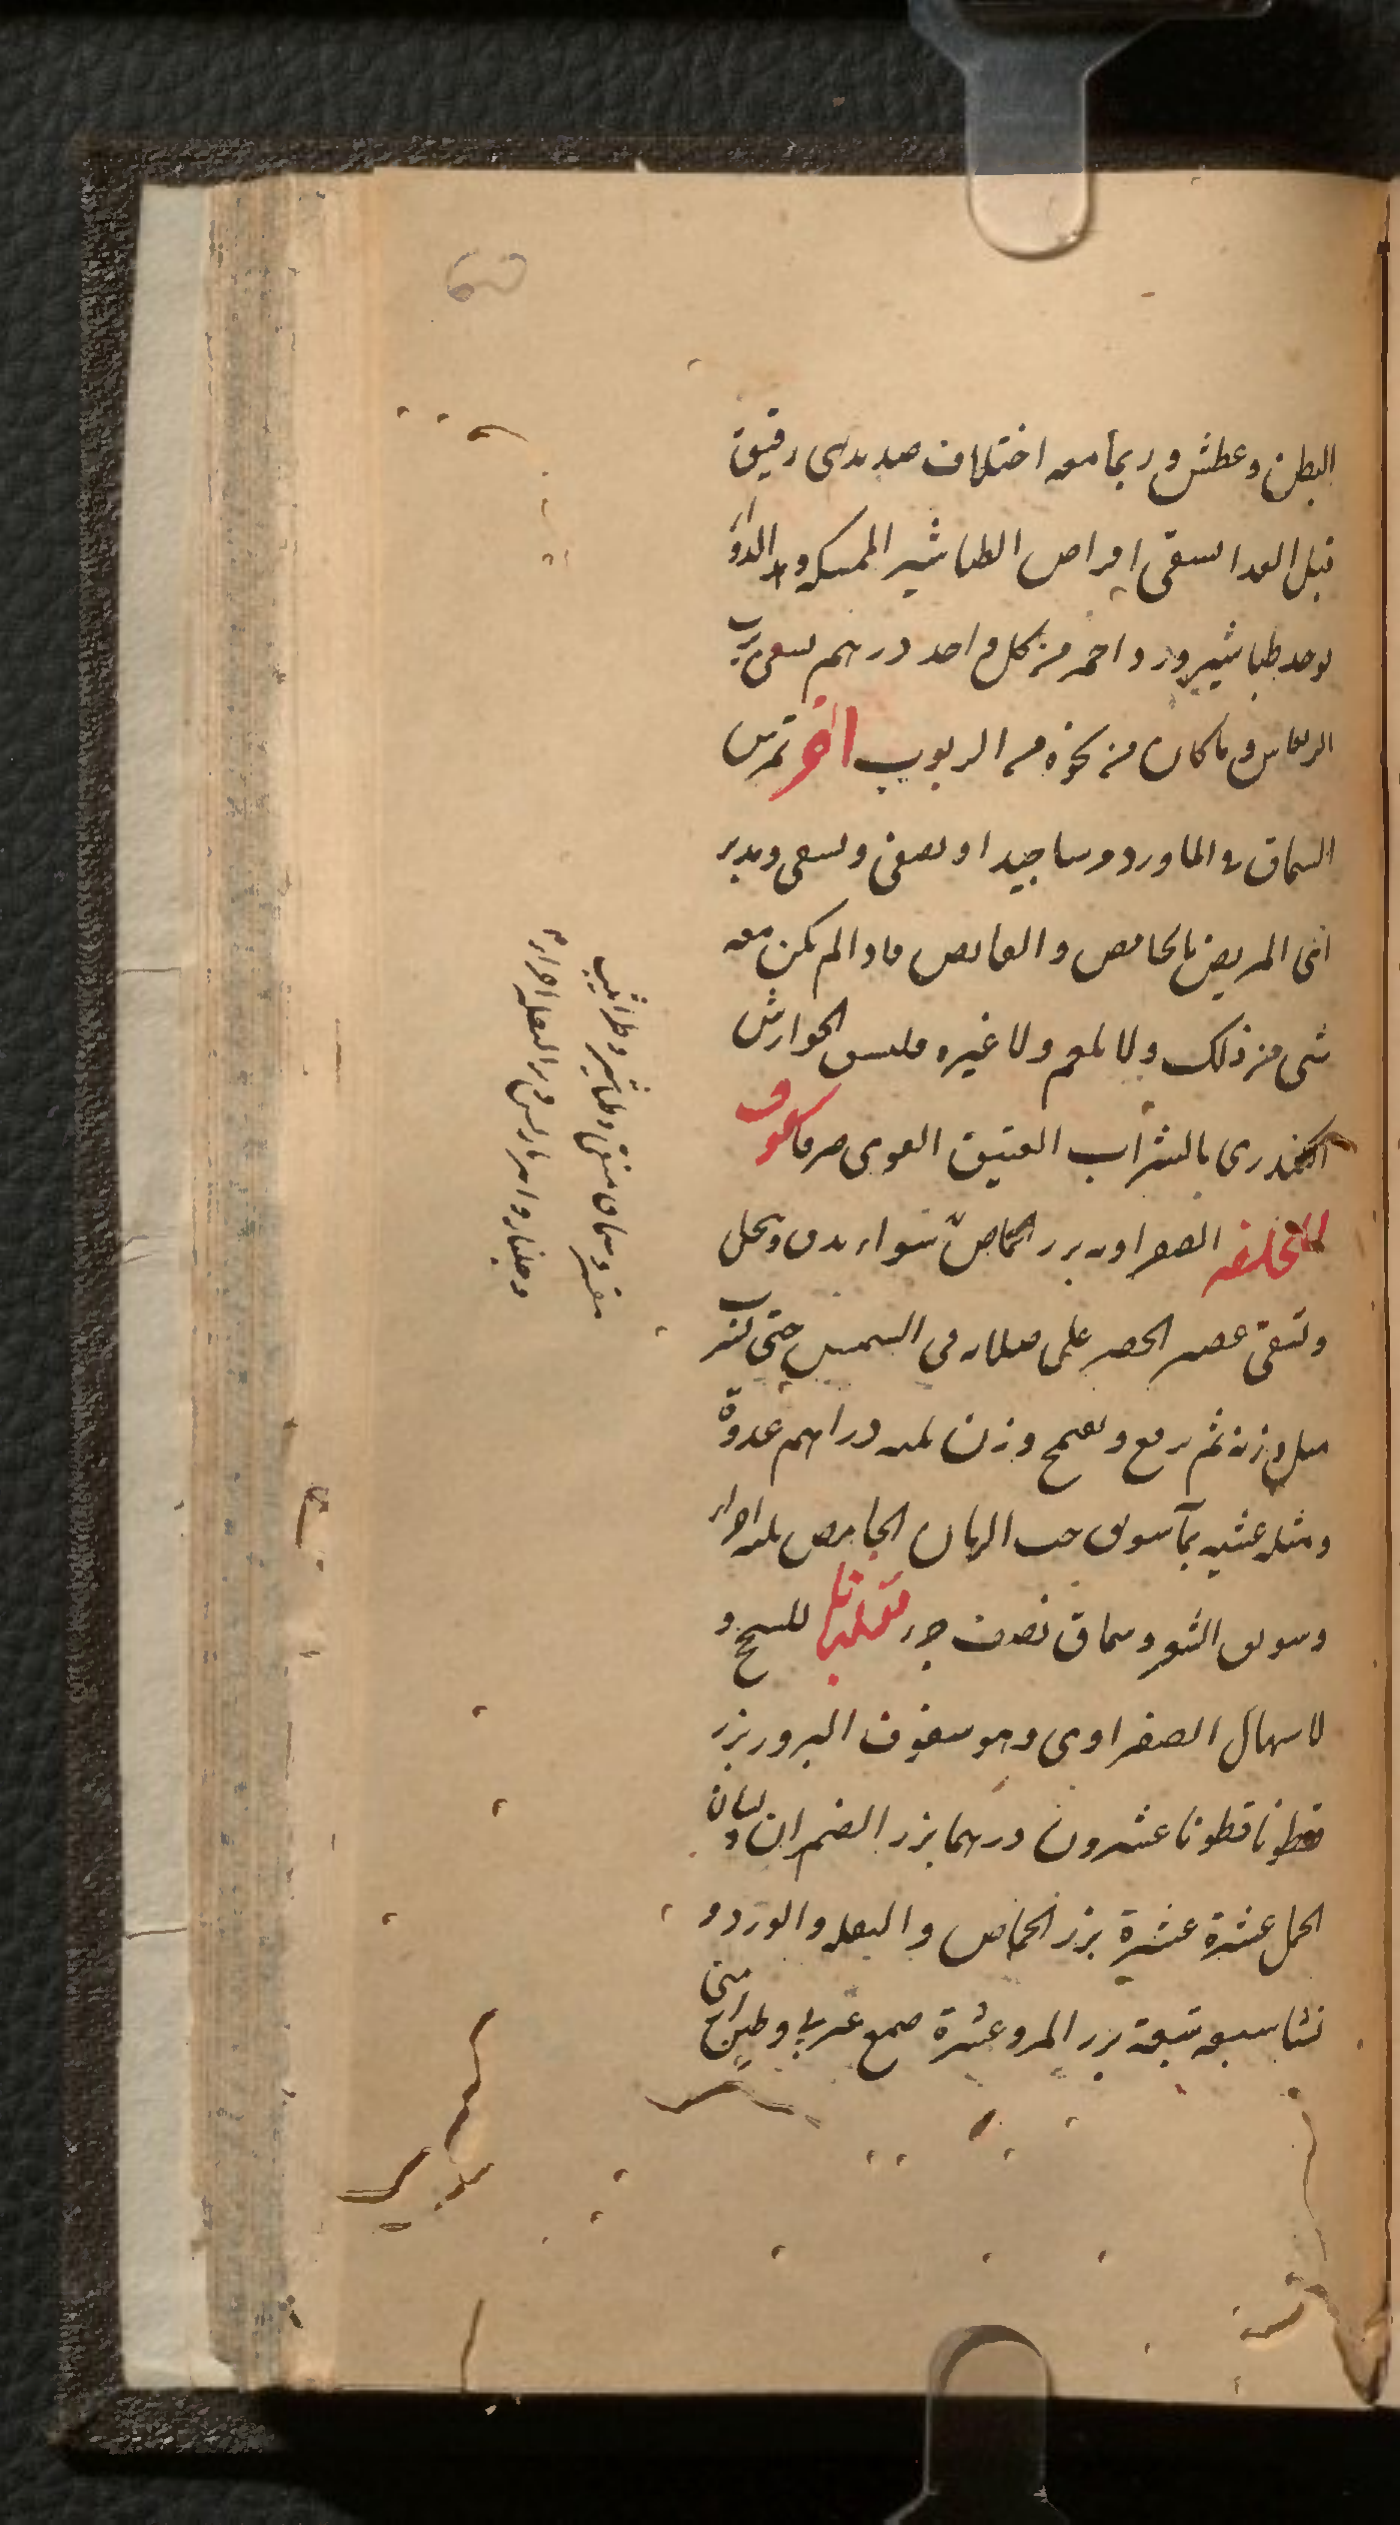 البطن وعطش وربما معه اختلاف صديدى رقيق
قبل الغدا يسقى اقراص الطباشير الممسكه وهذا الدواء
يوخد طباشير وورد احمر من كل واحد درهم يسقى برب
الريباس وما كان من نحوه من الربوب اخر تمرس
السماق فى الماورد مرسا جيدا ويصفى ويسقى ويدبر
اتى المريض بالحامص والقابص فاذا لم يكن معه
شى من ذلك ولا بلغم ولا غيره فليسق الجوارش
الكندرى بالشراب العتيق القوى صرفا سفوف
للخلفه الصفراويه بزر الحماض شواء يدق وينخل
ويسقى عصير الحصرم على صلايه فى الشمس حتى يشرب
مثل وزنه ثم يرفع ويقمح وزن ثلثه دراهم غدوة
ومثله عشيه بمآ سويق حب الرمان الحامص ثلثه اجزاء
وسويق الشعير وسماق نصف جزء مقلياثا للسحج و
لاسهال الصفراوى وهو سفوف البزور بزر
قطونا قطونا عشرون درهما بزر الضمران ولسان
الحمل عشرة عشرة بزر الحماض والبقله والورد و
نشا سبعه سبعة بزر المرو عشرة صمع عربى وطين ارمنى
مقشر وسماق منقى وطباشير وطراثيث
وجلنار وامير باريس وبزر البقله اجزاء